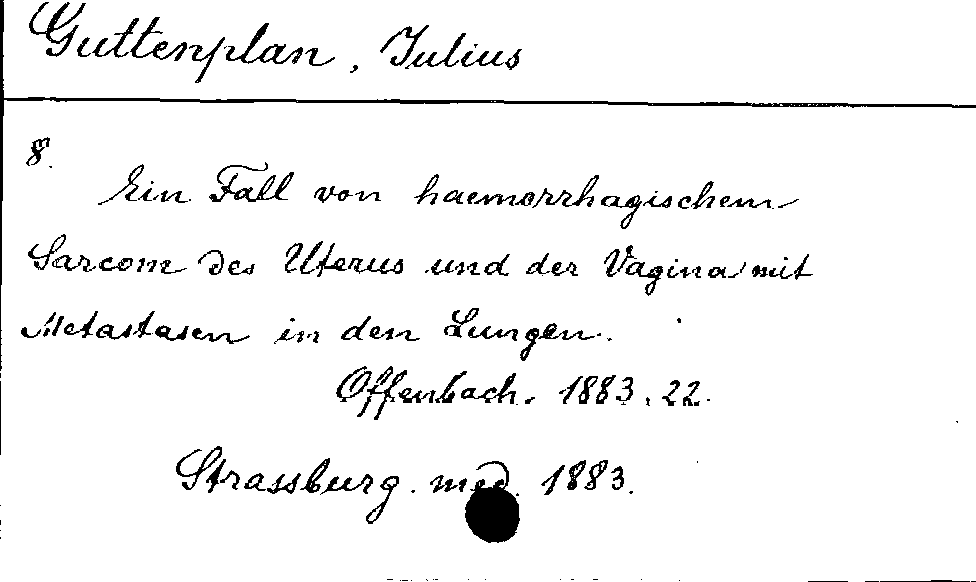 Guttenplan, Julius
8.
Ein Fall von haemorrhagischem
Sarcom des Uterus und der Vagina mit
Metastasen in den Lungen.
Offenbach. 1883. 22.
Strassburg. med. 1883.